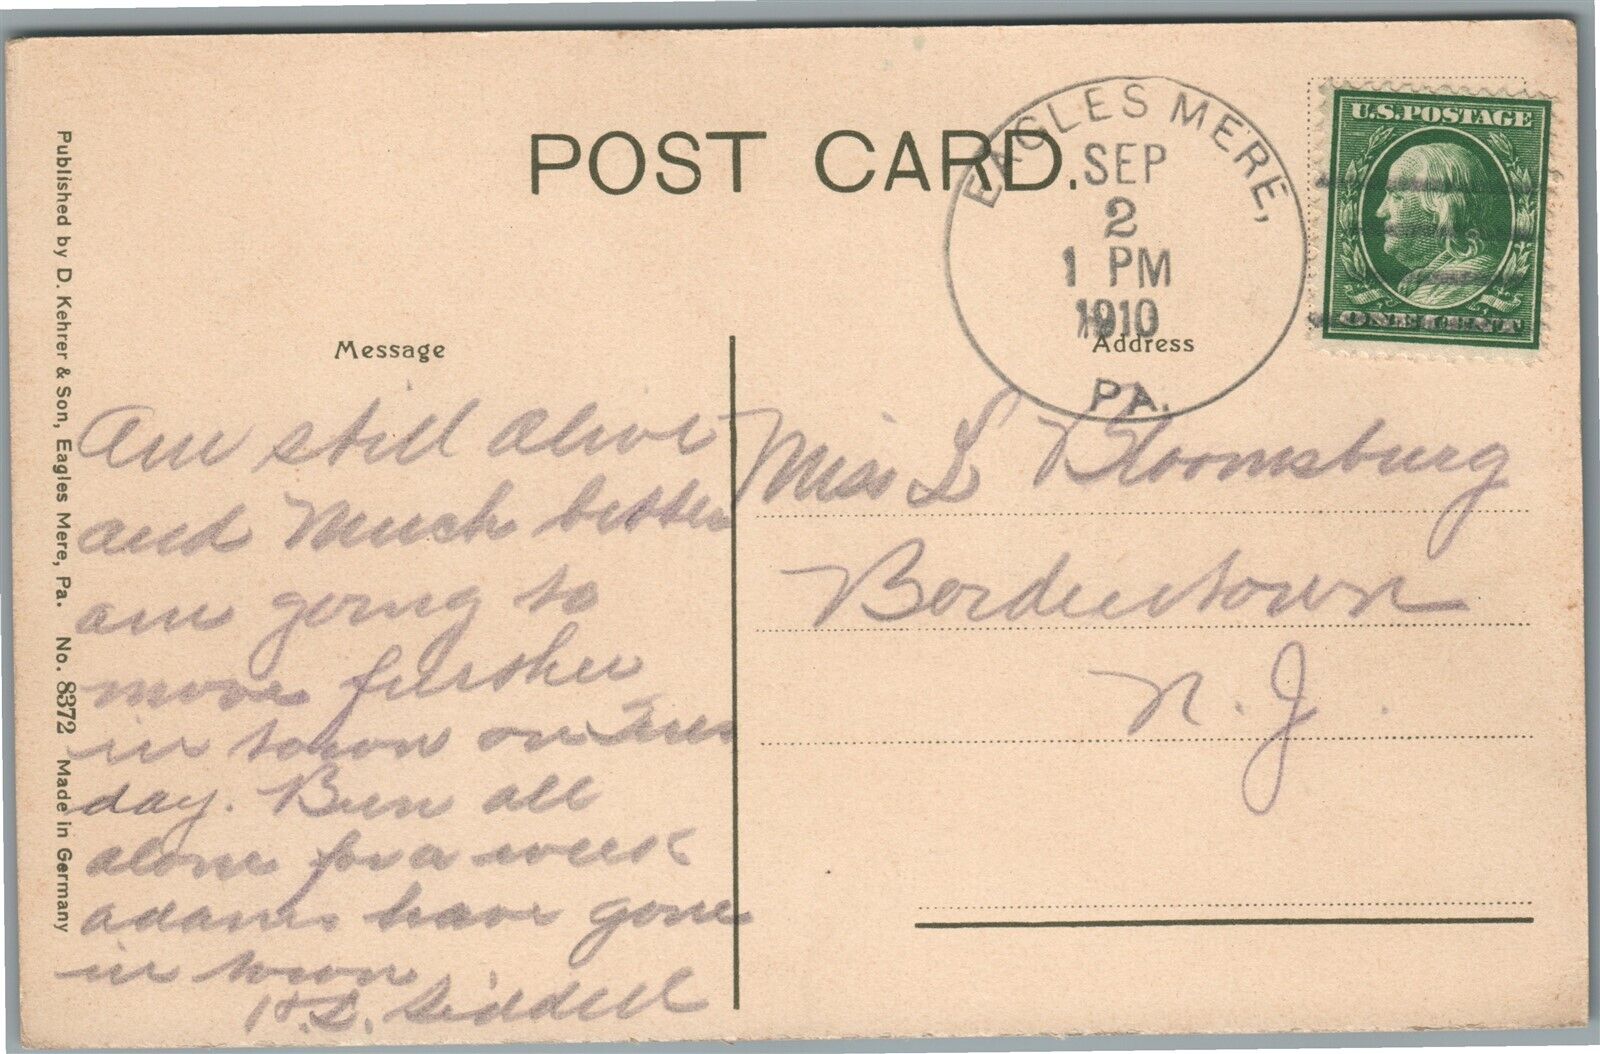 POST CARD.
EAGLES MERE,
SEP
2
1 PM
1910
PA.
U.S. POSTAGE
ONE CENT
Message
Address
Am still alive
and Much better
am going to
move further
in town on Tues
day. Been all
alone for a week
adams have gone
in town
H.L. Siddell
Miss L Bloomsburg
Bordentown
N. J.
Published by D. Kehrer & Son, Eagles Mere, Pa. No. 8372 Made in Germany